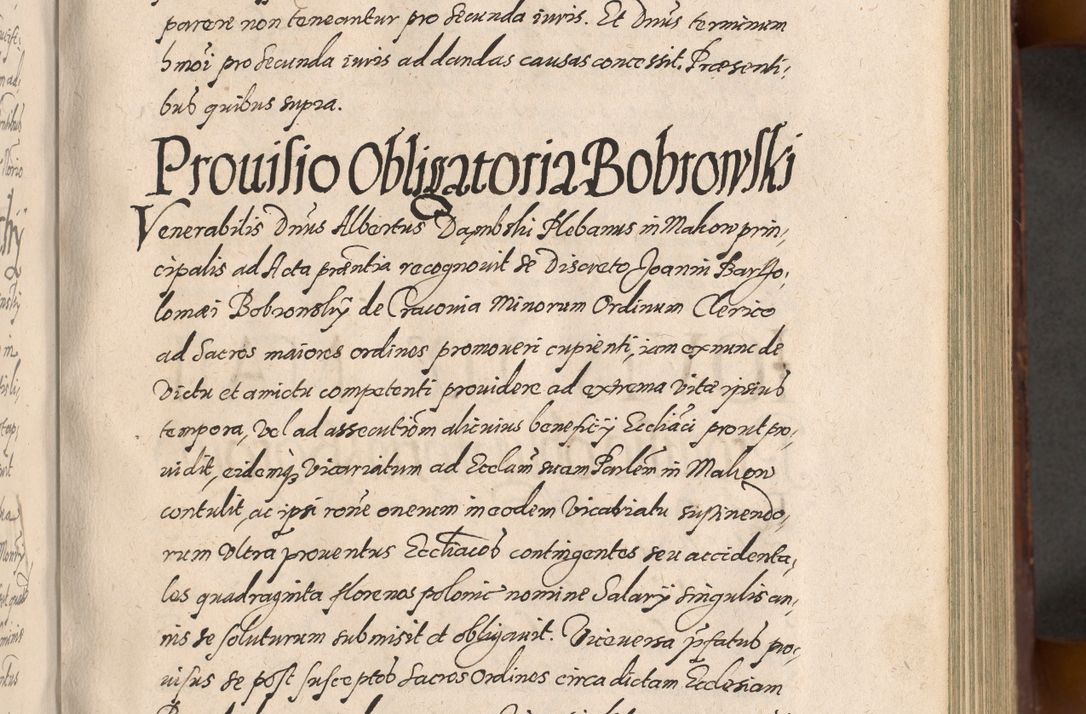 parere non teneantur pro secunda iuris. Et Dnus terminum
hmoi pro secunda iuris ad dandas causas concessit. Præsenti,
bus quibus supra.
Prouisio Obligatoria Bobrowski
Venerabilis Dnus Albertus Dąmbski Plebanus in Makow prin,
cipalis ad Acta præntia recognouit se Discreto Joanni Bartho,
lomæi Bobrowskӱ de Cracouia Minorum Ordinum Clerico
ad Sacros maiores ordines promoueri cupienti, iam ex nunc de
victu et amictu competenti prouidere ad extrema vitæ ipsius
tempora, vel ad assecutiom alicuius beneficij Eccliãci prout pro,
uidit, eidemq vicariatum ad Ecclam suam Parlem in Makow
contulit, ac ipsi rone onerum in eodem vicariatu sustinendo,
rum vltra prouentus Eccliacos contingentes seu accidenta,
les quadraginta florenos polonic nomine Salary singulis an,
nis se soluturum submisit et obligauit. Viceuersa pfatus pro,
uisus se post susceptos Sacros Ordines circa dictam Ecclesiam